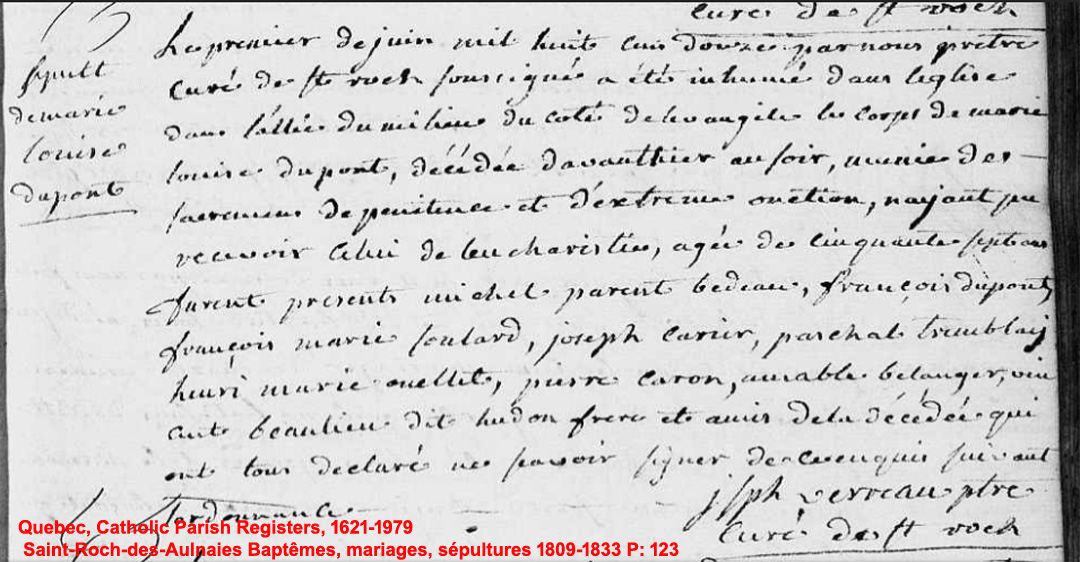 Curé de st roch
Sepult
de marie
louise
dupont
Le premier de juin mil huit cens douze par nous pretre
curé de st roch soussigné a été inhumé dans leglise
dans l'allée du milieu du coté de levangile le corps de marie
louise dupont, décédée davanthier au soir, munie des
sacremens de penitence et d'extreme onction, nayant pu
recevoir celui de leucharistie, agée de cinquante sept ans
furent presents michel parent bedeau, françois dupont,
françois marie soulard, joseph carier, paschal tremblay
henri marie ouellet, pierre caron, amable belanger, vin
cent beaulieu dit hudon frere et amis de la décédée qui
ont tous declaré ne savoir signer de ce enquis suivant
lordonnance
jsph verreau ptre
Curé de st roch
Quebec, Catholic Parish Registers, 1621-1979
Saint-Roch-des-Aulnaies Baptêmes, mariages, sépultures 1809-1833 P: 123